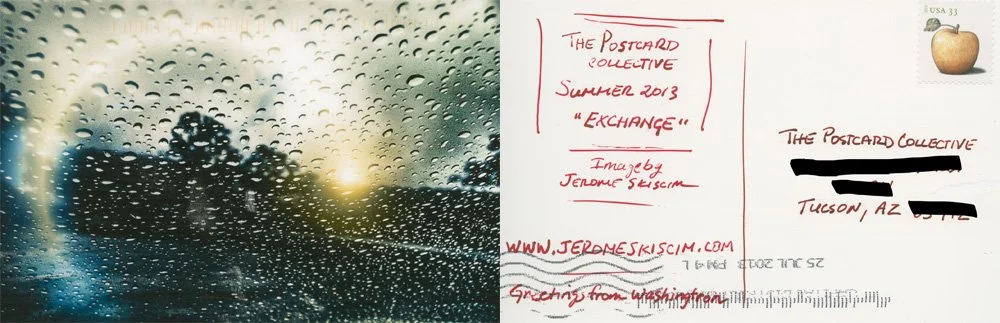 THE POSTCARD
COLLECTIVE
SUMMER 2013
"EXCHANGE"
Image by
JEROME SKISCIM
WWW.JEROMESKISCIM.COM
Greetings from Washington
USA 33
THE POSTCARD COLLECTIVE
TUCSON, AZ
25 JUL 2013 PM 4 L